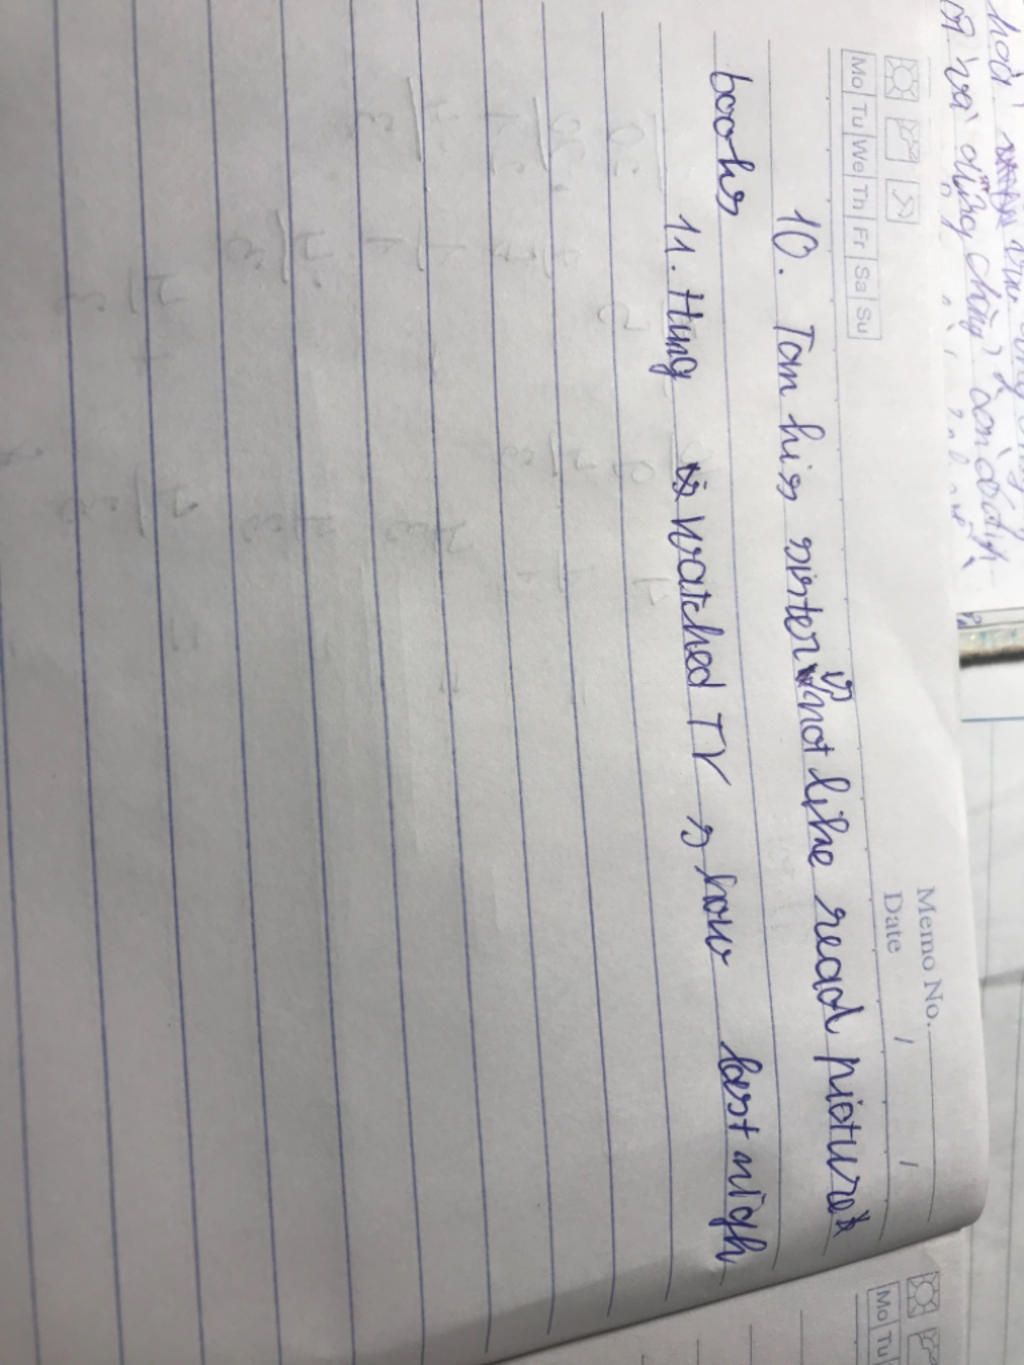 Memo No.
Mo Tu We Th Fr Sa Su
Date / /
10. Tan his sister is not like read picture
books
11. Hung watched TV show last nigh
Mo Tu